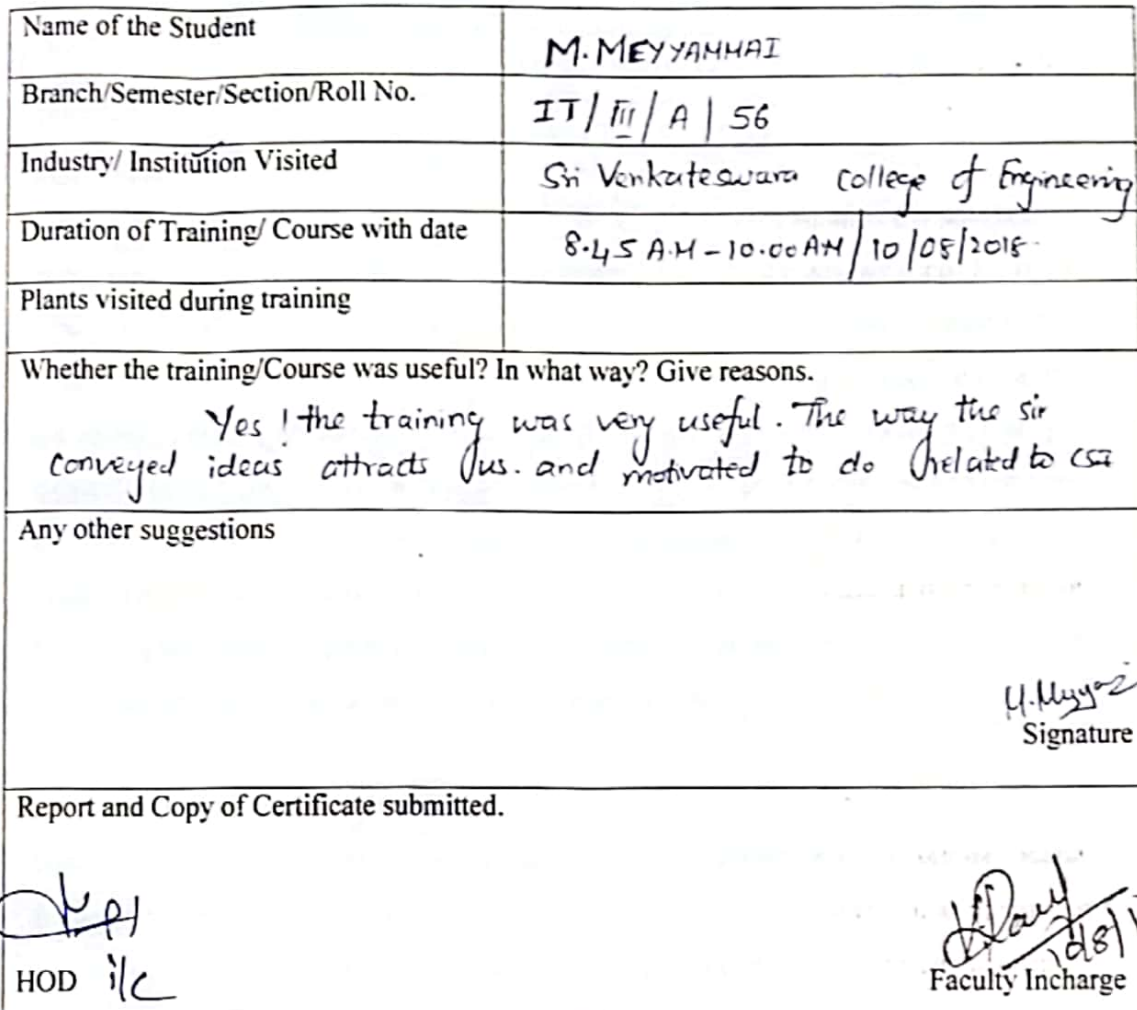 Name of the Student M. MEYYAMMAI
Branch/Semester/Section/Roll No. IT/III/A/56
Industry/ Institution Visited Sri Venkateswara College of Engineering
Duration of Training/ Course with date 8.45 A.M - 10.00 AM/10/08/2018
Plants visited during training
Whether the training/Course was useful? In what way? Give reasons.
Yes! the training was very useful. The way the sir
conveyed ideas attracts us. and motivated to do related to CSI
Any other suggestions
Signature
Report and Copy of Certificate submitted.
HOD i/c
Faculty Incharge